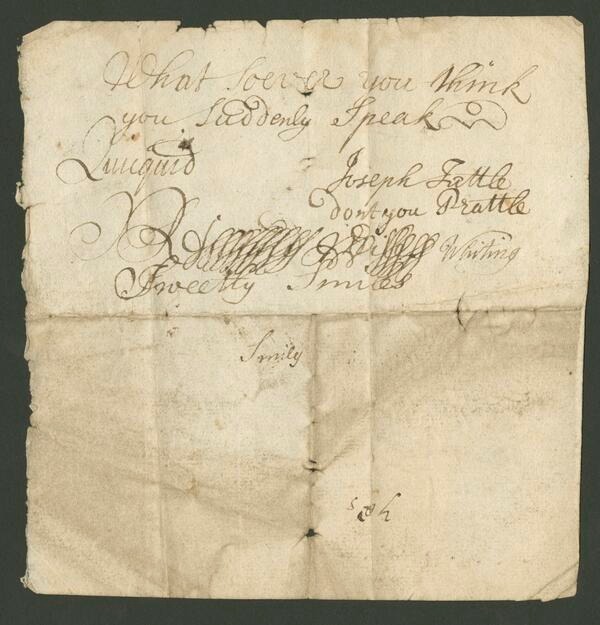 What soever you think
you Suddenly Speak
Quicquid
Joseph Tattle
dont you Prattle
Whiting
Sweetly Smiles
Smily